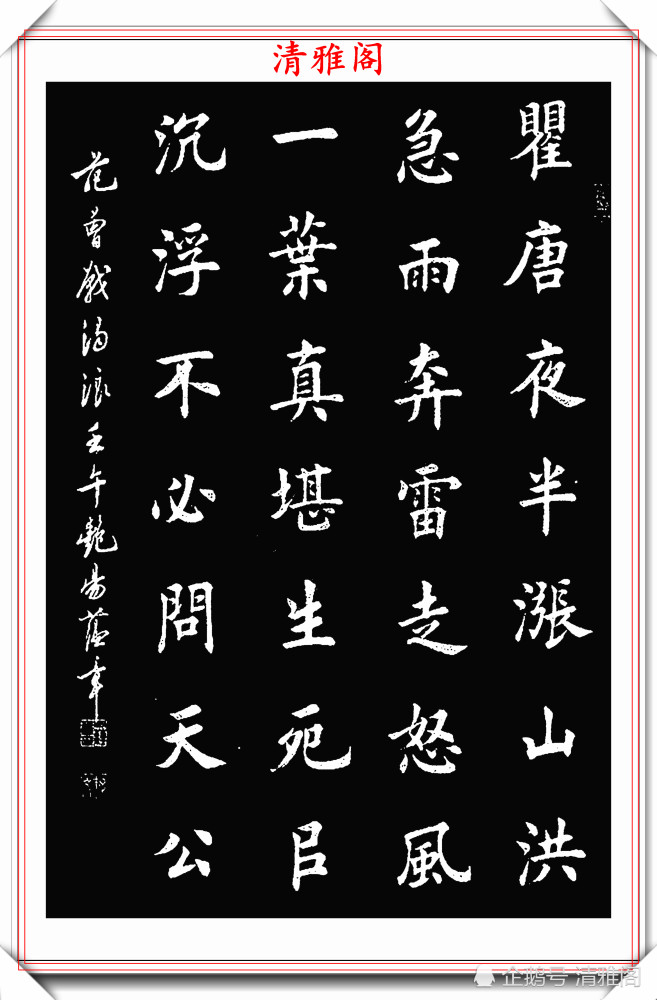 清雅阁
瞿唐夜半漲山洪
急雨奔雷走怒風
一葉真堪生死㠯
沉浮不必問天公
范曾戲海浪壬午艷陽蘊章
企鹅号 清雅阁